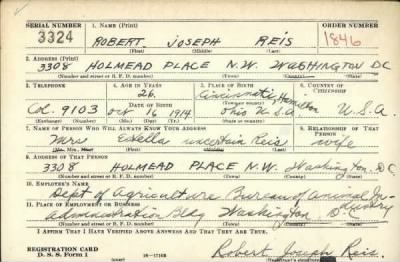 SERIAL NUMBER 1. NAME (Print) ORDER NUMBER
3324 ROBERT JOSEPH REIS 1846
(First) (Middle) (Last)
2. ADDRESS (Print)
3308 HOLMEAD PLACE N.W. WASHINGTON D.C.
(Number and street or R. F. D. number) (Town) (County) (State)
3. TELEPHONE 4. AGE IN YEARS 5. PLACE OF BIRTH 6. COUNTRY OF CITIZENSHIP
26 Cincinnati, Hamilton
DATE OF BIRTH (Town or county)
Col. 9103 Oct 16 1914 Ohio U.S.A. U.S.A.
(Exchange) (Number) (Mo.) (Day) (Yr.) (State or country)
7. NAME OF PERSON WHO WILL ALWAYS KNOW YOUR ADDRESS 8. RELATIONSHIP OF THAT PERSON
Mrs Estella uncertain Reis wife
(Mr., Mrs., Miss) (First) (Middle) (Last)
9. ADDRESS OF THAT PERSON
3308 HOLMEAD PLACE N.W. Washington, D.C.
(Number and street or R. F. D. number) (Town) (County) (State)
10. EMPLOYER'S NAME
Dept of Agriculture Bureau of Animal Industry
11. PLACE OF EMPLOYMENT OR BUSINESS
Administration Bldg Washington D.C.
(Number and street or R. F. D. number) (Town) (County) (State)
I AFFIRM THAT I HAVE VERIFIED ABOVE ANSWERS AND THAT THEY ARE TRUE.
REGISTRATION CARD
D. S. S. Form 1 Robert Joseph Reis